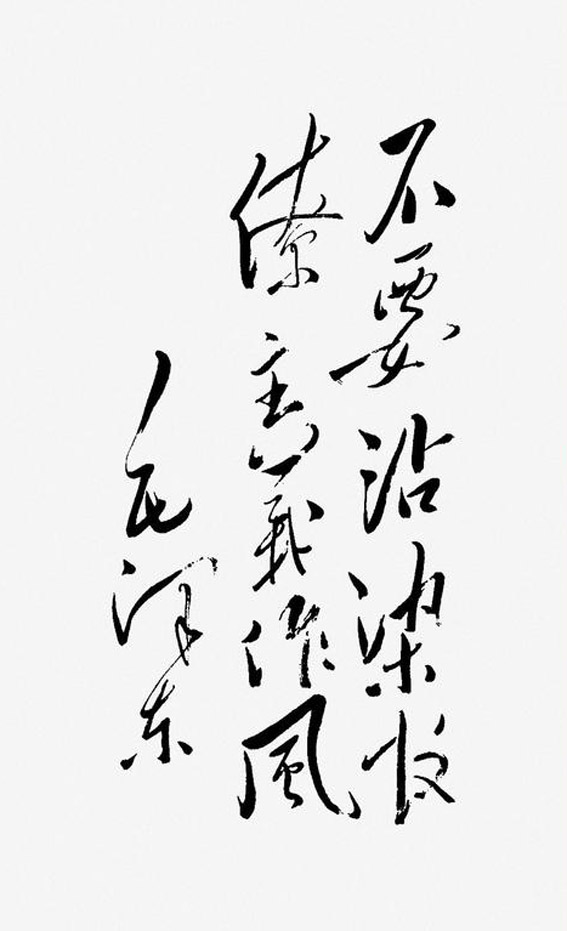 不要沾染
僚主義作風
毛澤东